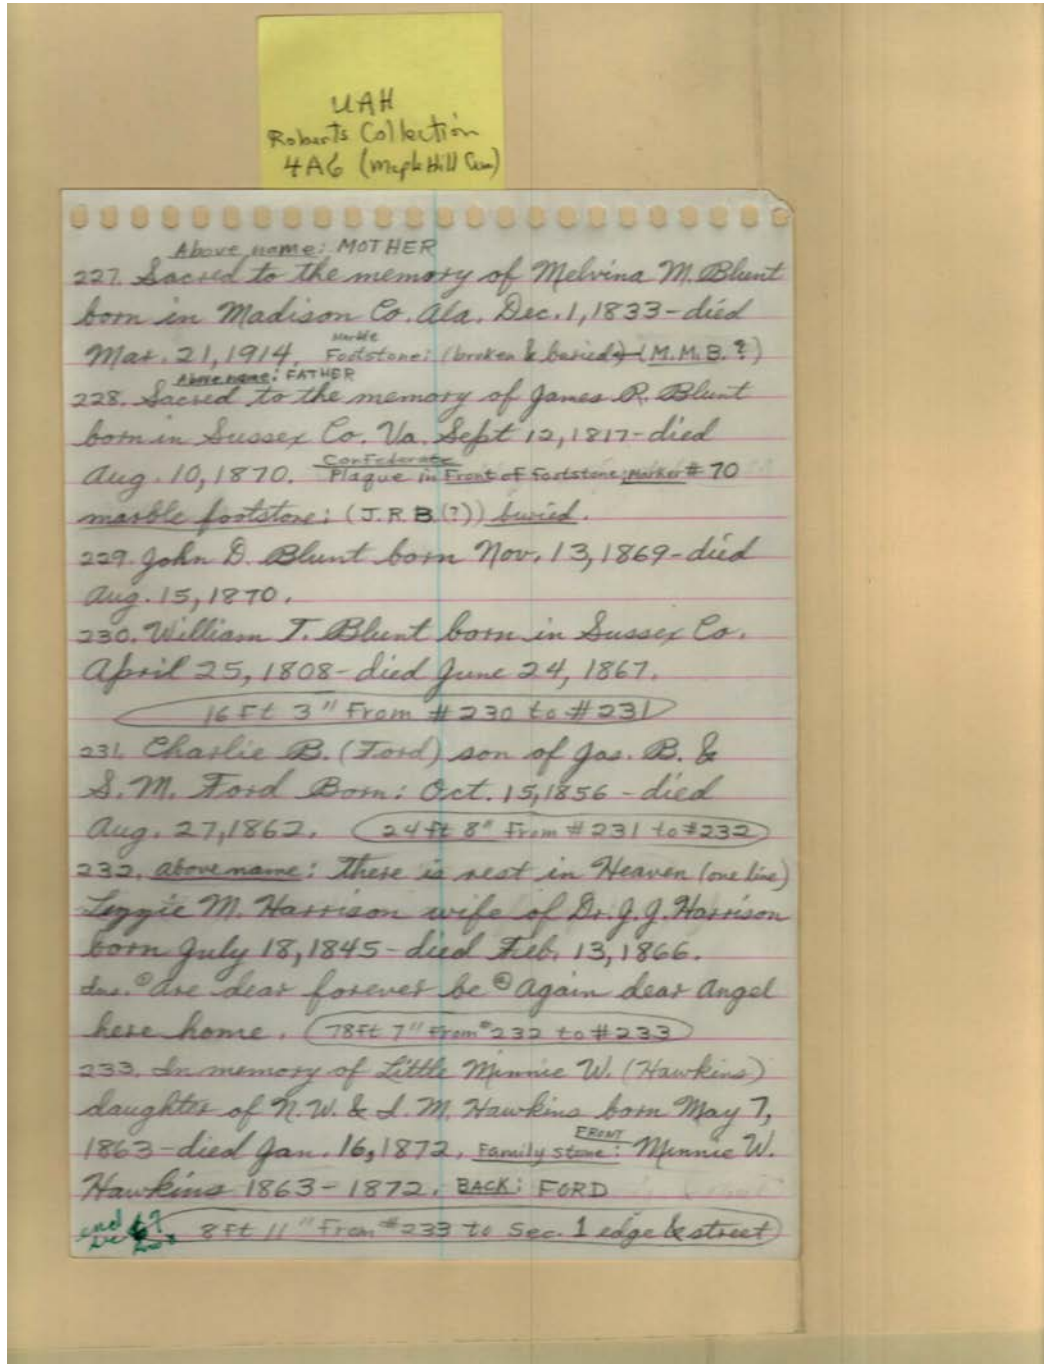 UAH
Roberts Collection
4A6 (Maple Hill Cem)
Above name: MOTHER
227. Sacred to the memory of Melvina M. Blunt
born in Madison Co. Ala. Dec. 1, 1833 - died
Marble
Mar. 21, 1914. Footstone: (broken & buried) (M.M.B.?)
Above name: FATHER
228. Sacred to the memory of James R. Blunt
born in Sussex Co. Va. Sept 12, 1817 - died
Confederate
Aug. 10, 1870. Plaque in Front of footstone; Marker # 70
marble footstone: (J.R.B.(?)) buried.
229. John D. Blunt born Nov. 13, 1869 - died
Aug. 15, 1870.
230. William T. Blunt born in Sussex Co.
April 25, 1808 - died June 24, 1867.
16 Ft 3" From #230 to #231
231. Charlie B. (Ford) son of Jas. B. &
S.M. Ford Born: Oct. 15, 1856 - died
Aug. 27, 1862. 24 ft 8" From #231 to #232
232. above name: There is rest in Heaven (one line)
Lizzie M. Harrison wife of Dr. J.J. Harrison
born July 18, 1845 - died Feb. 13, 1866.
Are dear forever be Again dear Angel
here home. 78 Ft 7" From #232 to #233
233. In memory of Little Minnie W. (Hawkins)
daughter of N.W. & I.M. Hawkins born May 7,
FRONT
1863 - died Jan. 16, 1872. Family stone: Minnie W.
Hawkins 1863 - 1872. BACK: FORD
8 Ft 11" From #233 to Sec. 1 edge & street